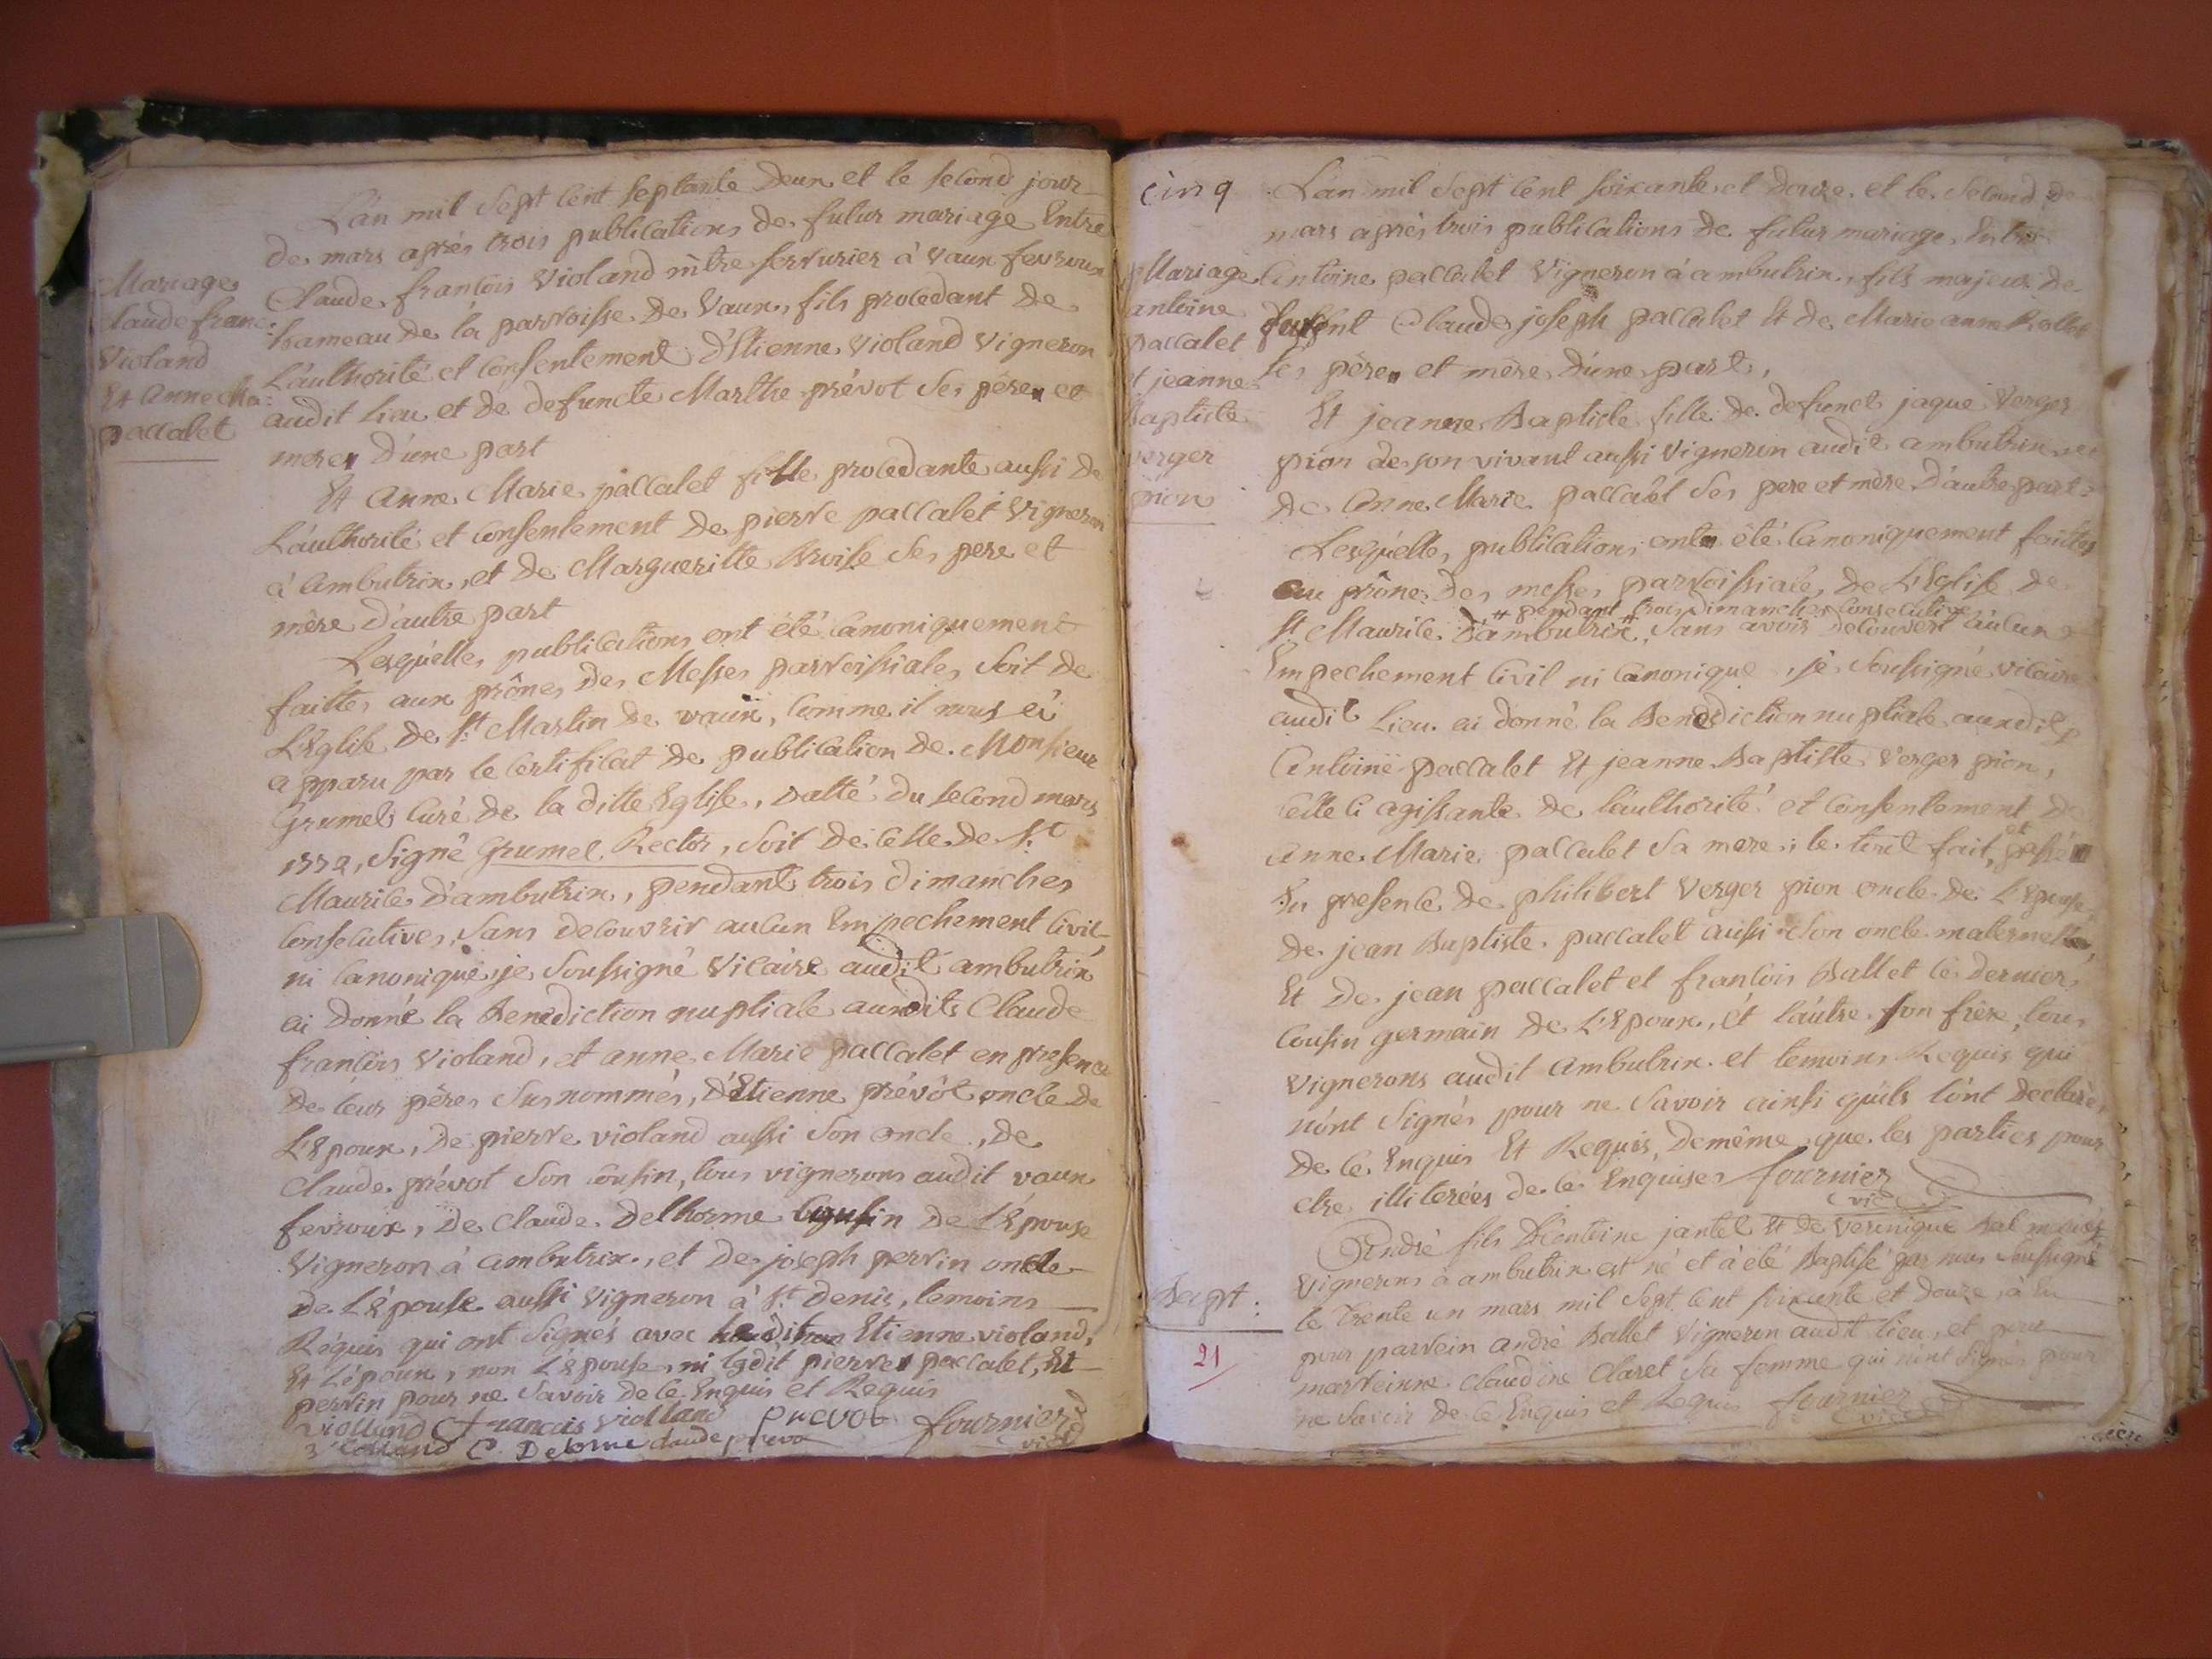 L'an mil Sept cent septante deux et le second jour
de mars après trois publications de futur mariage Entre
Claude françois Violand mtre serrurier à Vaux fevroux
hameau de la parroisse de Vaux, fils procedant de
L'authorité et consentement d'Etienne Violand Vigneron
audit lieu et de defuncte Marthe prévot ses père et
mere d'une part
Mariage
claude franc:
Violand
Et Anne Ma:
paccalet
Et Anne Marie paccalet fille procedante aussi de
L'authorité et consentement de pierre paccalet Vigneron
à ambutrix, et de Margueritte Broise ses pere et
mère d'autre part
Lesquelles publications ont été canoniquement
faittes aux prônes des Messes parroissiales Soit de
L'Eglise de St Martin de vaux, comme il nous à
apparu par le certificat de publication de Monsieur
Grumel Curé de la ditte Eglise, datté du second mars
1772, Signé Grumel Rector, Soit de celle de St
Maurice d'ambutrix, pendant trois dimanches
consecutives, Sans decouvrir aucun Empechement civil
ni canonique, je soussigné Vicaire audit ambutrix
ai donné la Benediction nuptiale auxdits Claude
françois Violand, et anne Marie paccalet en presence
de leur pères susnommés, d'Etienne prévôt oncle de
L'Epoux, de pierre violand aussi son oncle, de
Claude prévot son cousin, tous vignerons audit vaux
fevroux, de claude Delhorme Cousin de L'Epouse
Vigneron à ambutrix, et de joseph perrin oncle
de L'épouse aussi Vigneron à St Denis, temoins
Requis qui ont signés avec ledit Etienne violand,
Et L'époux, non L'Epouse, ni lesdit pierre paccalet, Et
perrin pour ne Savoir de ce Enquis et Requis
violland françois violland prevot fournier
violland C. Delorme claude prevo vic
cinq
L'an mil Sept cent soixante et douze et le Second de
mars après trois publications de futur mariage Entre
Antoine paccalet Vigneron à ambutrix, fils majeur de
Claude joseph paccalet Et de Marie anne Rollet
ses père et mère d'une part,
Mariage
antoine
paccalet
et jeanne
Baptiste
verger
pion
Et jeanne Baptiste fille de defunct jaque Verger
pion de son vivant aussi Vigneron audit ambutrix et
de Anne Marie paccalet Ses pere et mère d'autre part
Lesquelles publications ont été canoniquement faittes
au prône des messes parroissiale de L'Eglise de
# pendant trois dimanches consecutives
St Maurice d'ambutrix # Sans avoir decouvert aucun
Empechement civil ni canonique, je Soussigné vicaire
audit Lieu ai donné la Benediction nuptiale auxdits
Antoine paccalet Et jeanne Baptiste Verger pion,
celle ci agissante de l'authorité et consentement de
anne Marie paccalet Sa mere; le tout fait, et passé
En presence de philibert Verger pion oncle de L'Epouse
de jean Baptiste paccalet aussi Son oncle maternelle,
Et de jean paccalet et françois Ballet ce dernier
cousin germain de L'Epoux, et l'autre son frère, tous
vignerons audit ambutrix et temoins Requis qui
n'ont Signés pour ne Savoir ainsi qu'ils l'ont declaré
de ce Enquis Et Requis, de même que les parties pour
etre illiterées de ce Enquises fournier
vic
André fils d'Antoine jantet Et de Veronique
Vignerons à ambutrix est né et à été Baptisé par nous Soussigné
le trente un mars mil Sept cent soixante et douze, a eu
pour parrein andré Ballet Vigneron audit lieu, et pour
marreinne claudine Claret sa femme qui n'ont signés pour
ne Savoir de ce Enquis et Requis fournier
vic
Bapt:
21